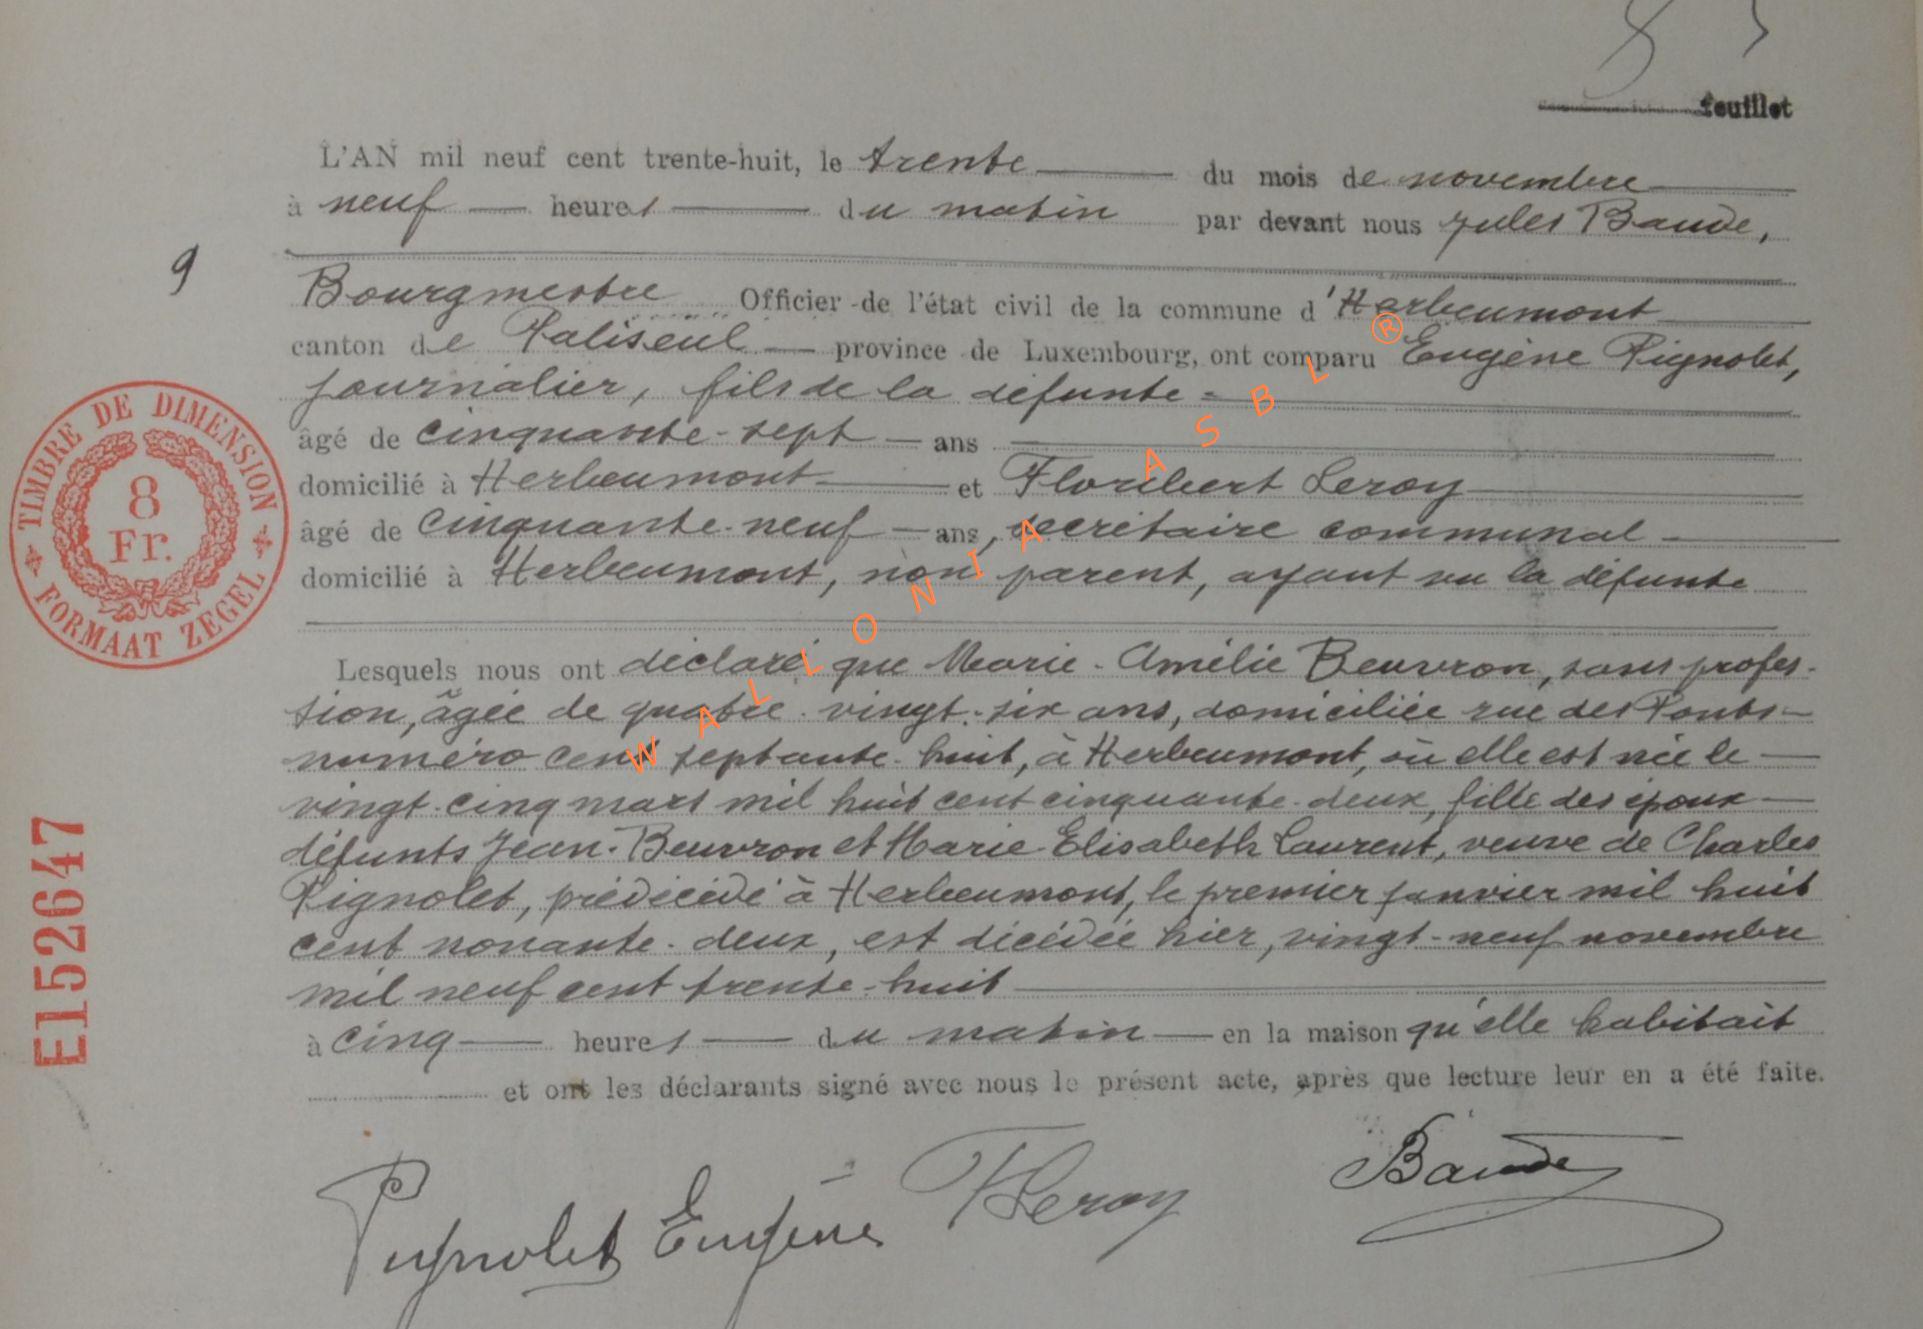 feuillet
L'AN mil neuf cent trente-huit, le trente du mois de novembre
à neuf heures du matin par devant nous Jules Baude,
9
Bourgmestre Officier de l'état civil de la commune d'Herbeumont
canton de Paliseul province de Luxembourg, ont comparu Eugène Pignolet,
journalier, fils de la défunte
âgé de cinquante-sept ans
domicilié à Herbeumont et Floribert Leroy
âgé de cinquante-neuf ans, secrétaire communal
domicilié à Herbeumont, non parent, ayant vu la défunte
Lesquels nous ont déclaré que Marie-Amélie Beuvron, sans profes-
sion, âgée de quatre-vingt-six ans, domiciliée rue des Ponts
numéro cent septante-huit, à Herbeumont, où elle est née le
vingt-cinq mars mil huit cent cinquante-deux, fille des époux
défunts Jean-Beuvron et Marie-Elisabeth Laurent, veuve de Charles
Pignolet, prédécédé à Herbeumont, le premier janvier mil huit
cent nonante-deux, est décédée hier, vingt-neuf novembre
mil neuf cent trente-huit
à cinq heures du matin en la maison qu'elle habitait
et ont les déclarants signé avec nous le présent acte, après que lecture leur en a été faite.
Pignolet Eugène FLeroy Baude
TIMBRE DE DIMENSION
8
Fr.
FORMAAT ZEGEL
E152647
WALLONIA ASBL ®